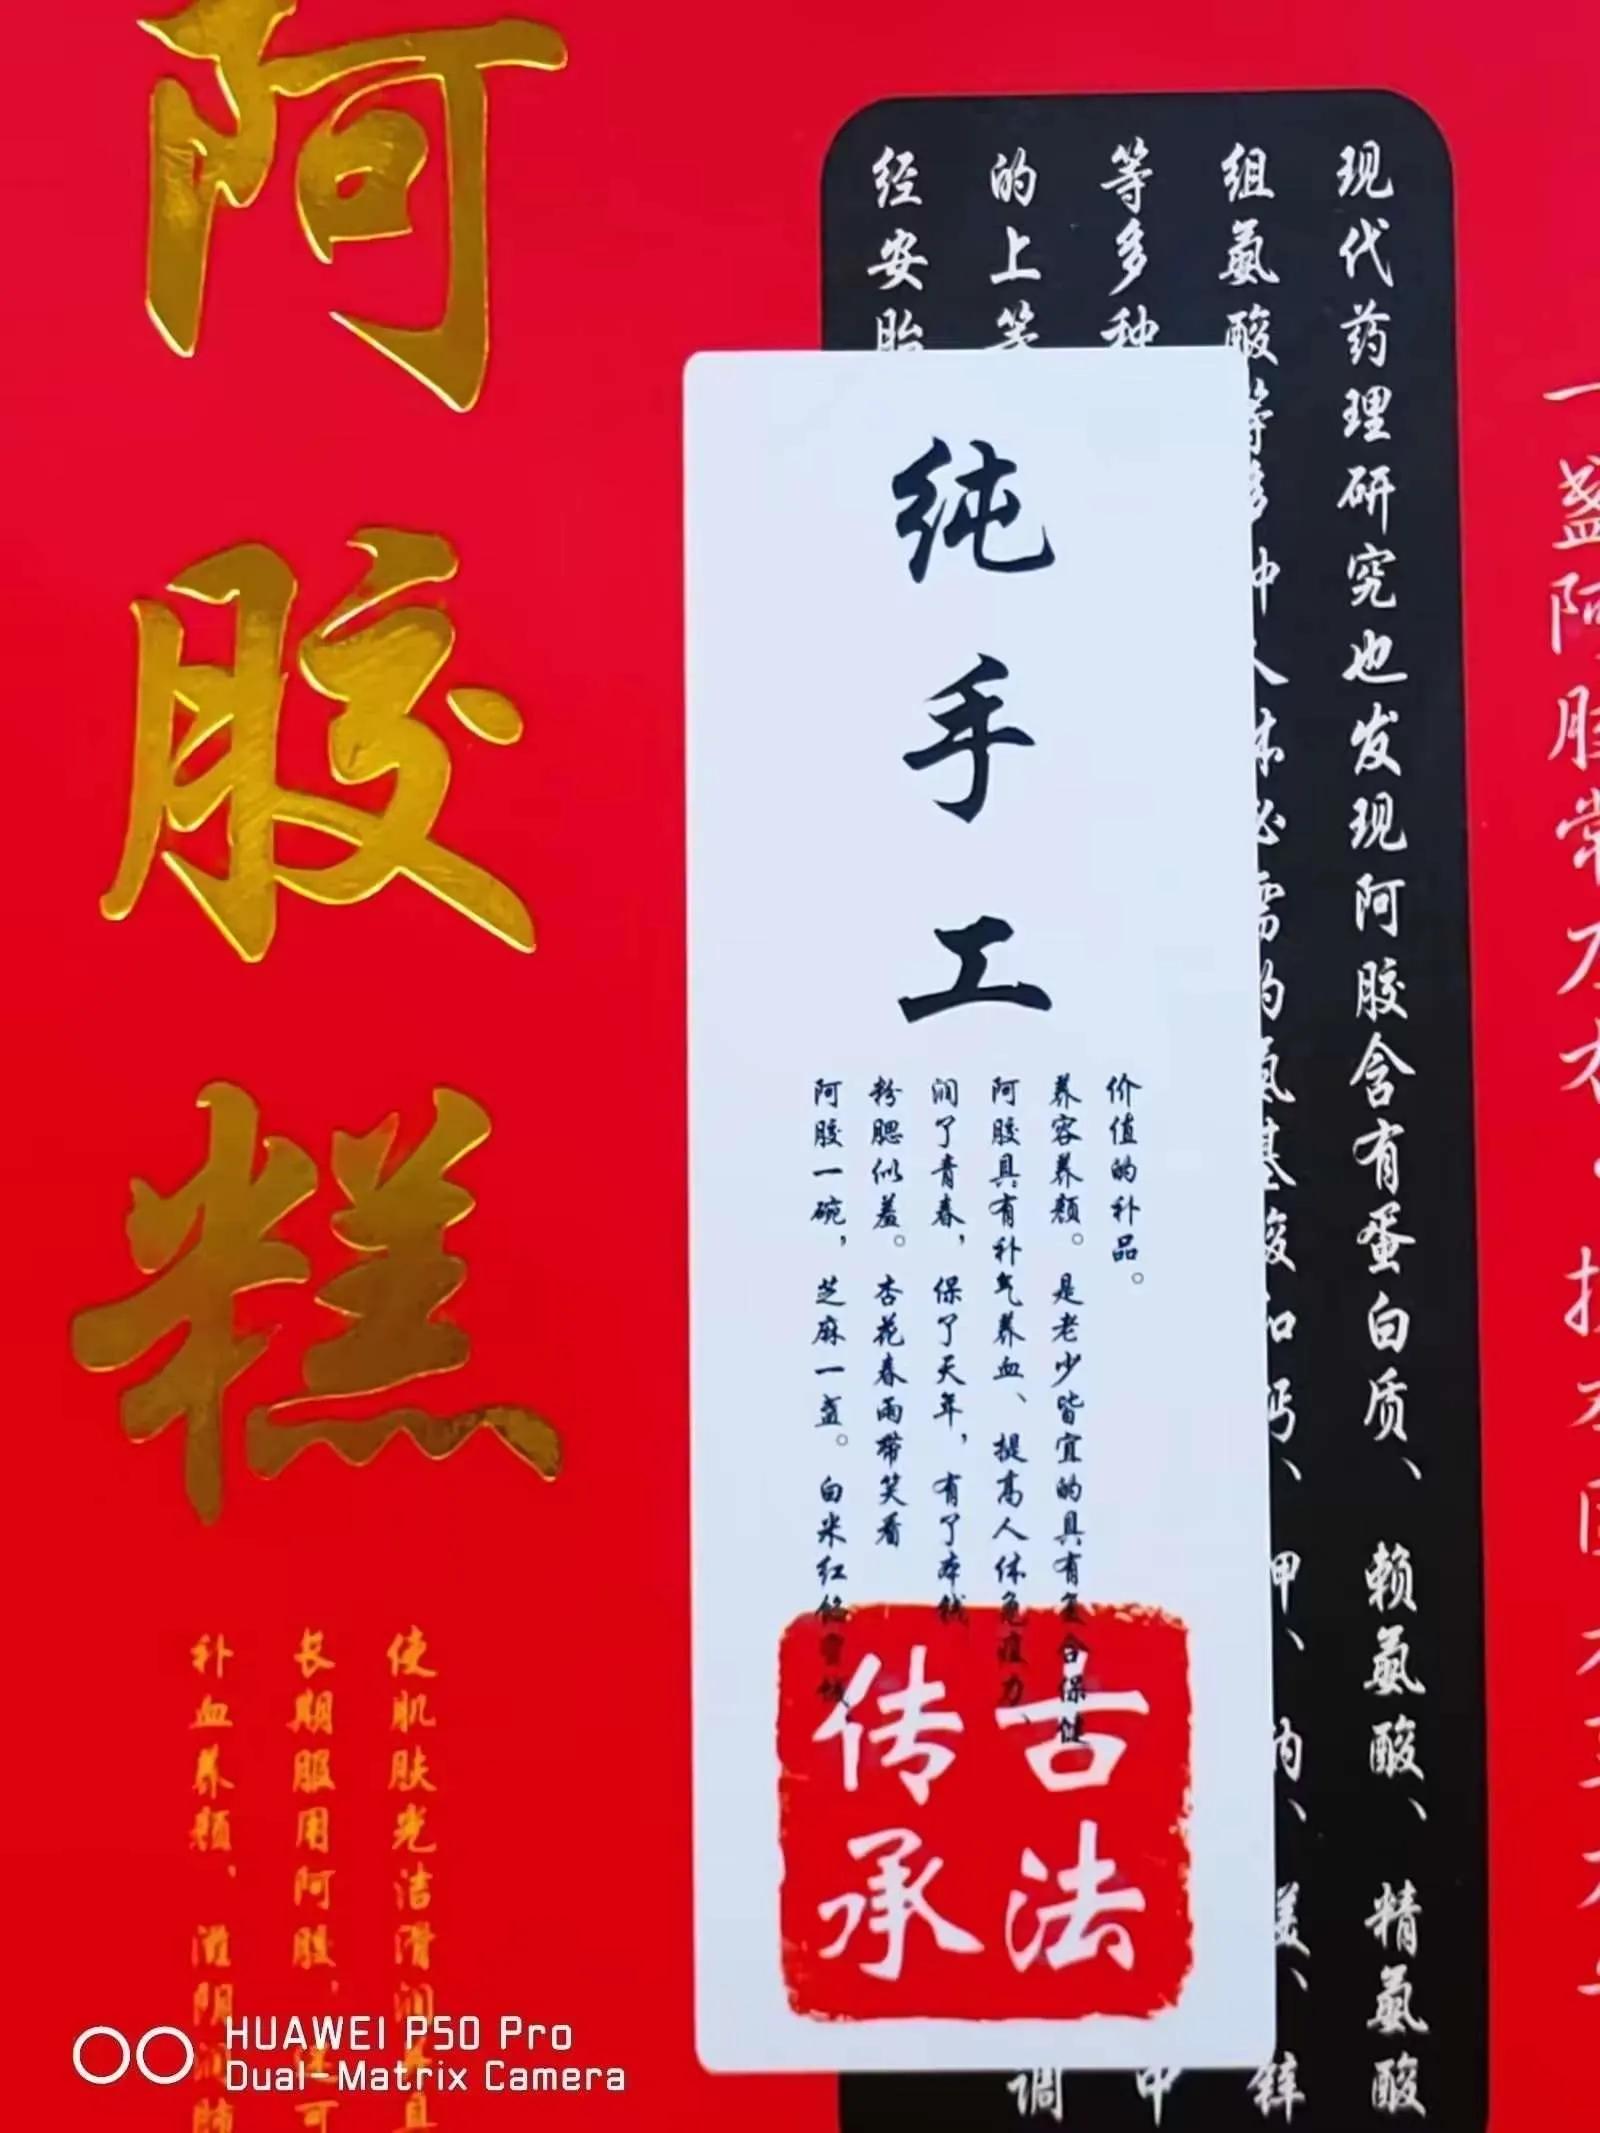 阿胶糕
使肌肤光洁滑润
长期服用阿胶，
补血养颜、滋阴润肺
纯手工
价值的补品。
养容养颜。是老少皆宜的具有复合保健
阿胶具有补气养血、提高人体免疫力、
润了青春，保了天年，有了本钱
粉腮似羞。杏花春雨带笑看
阿胶一碗，芝麻一盏。白米红
古法
传承
现代药理研究也发现阿胶含有蛋白质、赖氨酸、精氨酸
组氨酸等多种人体必需的氨基酸和钙、钾、钠、镁、锌
等多种
的上等
经安胎
调
一盏阿胶常
HUAWEI P50 Pro
Dual-Matrix Camera